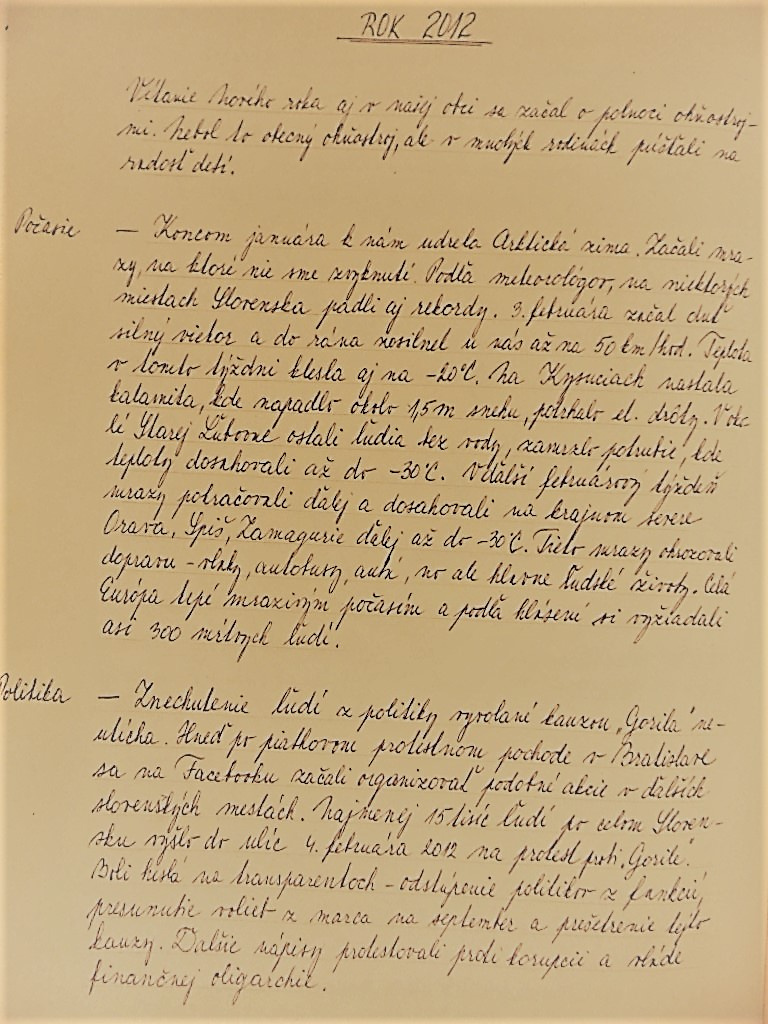 ROK 2012
Vítanie Nového roka aj v našej obci sa začal o polnoci ohňostroj-
mi. Nebol to obecný ohňostroj, ale v mnohých rodinách púšťali na
radosť detí.
Počasie — Koncom januára k nám udrela Arktická zima. Začali mra-
zy, na ktoré nie sme zvyknutí. Podľa meteorológov, na niektorých
miestach Slovenska padli aj rekordy. 3. februára začal duť
silný vietor a do rána zosilnel u nás až na 50 km/hod. Teplota
v tomto týždni klesla aj na -20°C. Na Kysuciach nastala
kalamita, kde napadlo okolo 1,5 m snehu, potrhalo el. drôty. V oko-
lí Starej Ľubovne ostali ľudia bez vody, zamrzlo potrubie, kde
teploty dosahovali až do -30°C. V ďalší februárový týždeň
mrazy pokračovali ďalej a dosahovali na krajnom severe
Orava, Spiš, Zamagurie ďalej až do -30°C. Tieto mrazy ohrozovali
dopravu - vlaky, autobusy, autá, no ale hlavne ľudské životy. Celá
Európa trpí mrazivým počasím a podľa hlásení si vyžiadali
asi 300 mŕtvych ľudí.
Politika — Znechutenie ľudí z politiky vyvolané kauzou „Gorila" ne-
utícha. Hneď po piatkovom protestnom pochode v Bratislave
sa na Facebooku začali organizovať podobné akcie v ďalších
slovenských mestách. Najmenej 15 tisíc ľudí po celom Sloven-
sku vyšlo do ulíc 4. februára 2012 na protest proti „Gorile".
Boli heslá na transparentoch - odstúpenie politikov z funkcií,
presunutie volieb z marca na september a prešetrenie tejto
kauzy. Ďalšie nápisy protestovali proti korupcii a vláde
finančnej oligarchie.